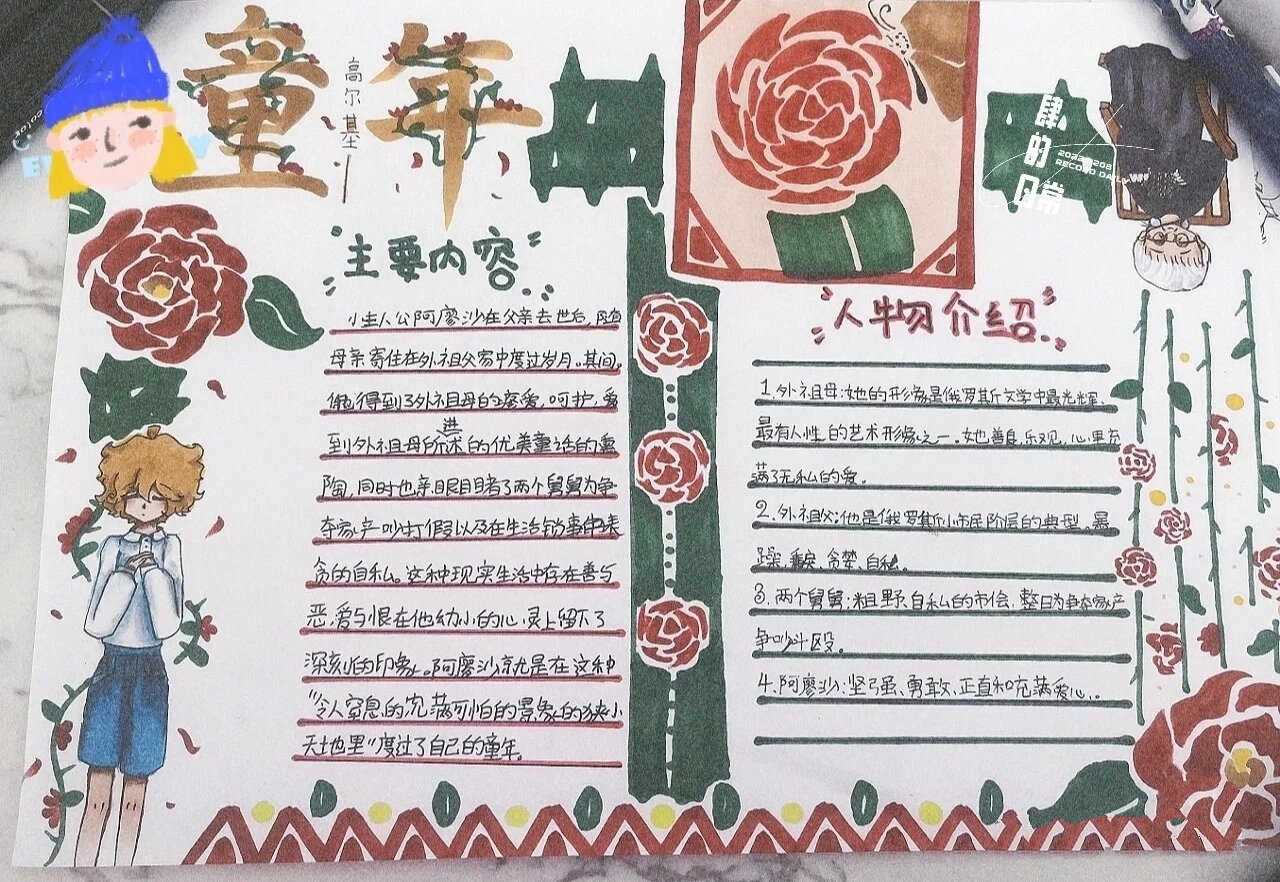 童年
高尔基
主要内容
小主人公阿廖沙在父亲去世后,随
母亲寄住在外祖父家中度过岁月。其间,
他得到了外祖母的疼爱、呵护,受
到外祖母所讲述的优美童话的熏
陶,同时也亲眼目睹了两个舅舅为争
夺家产吵打假以及在生活琐事中表
贪的自私。这种现实生活中存在善与
恶,爱与恨在他幼小的心灵上留下了
深刻的印象。阿廖沙就是在这种
“令人窒息的充满可怕的景象的狭小
天地里”度过了自己的童年。
人物介绍
1.外祖母:她的形象是俄罗斯文学中最光辉、
最有人性的艺术形象之一。她善良、乐观,心里充
满了无私的爱。
2.外祖父:他是俄罗斯小市民阶层的典型。暴
躁、贪婪、自私。
3.两个舅舅:粗野、自私的市侩,整日为争夺家产
争吵斗殴。
4.阿廖沙:坚强、勇敢、正直和充满爱心..
肆的日常
20222208
RECORD DAILY